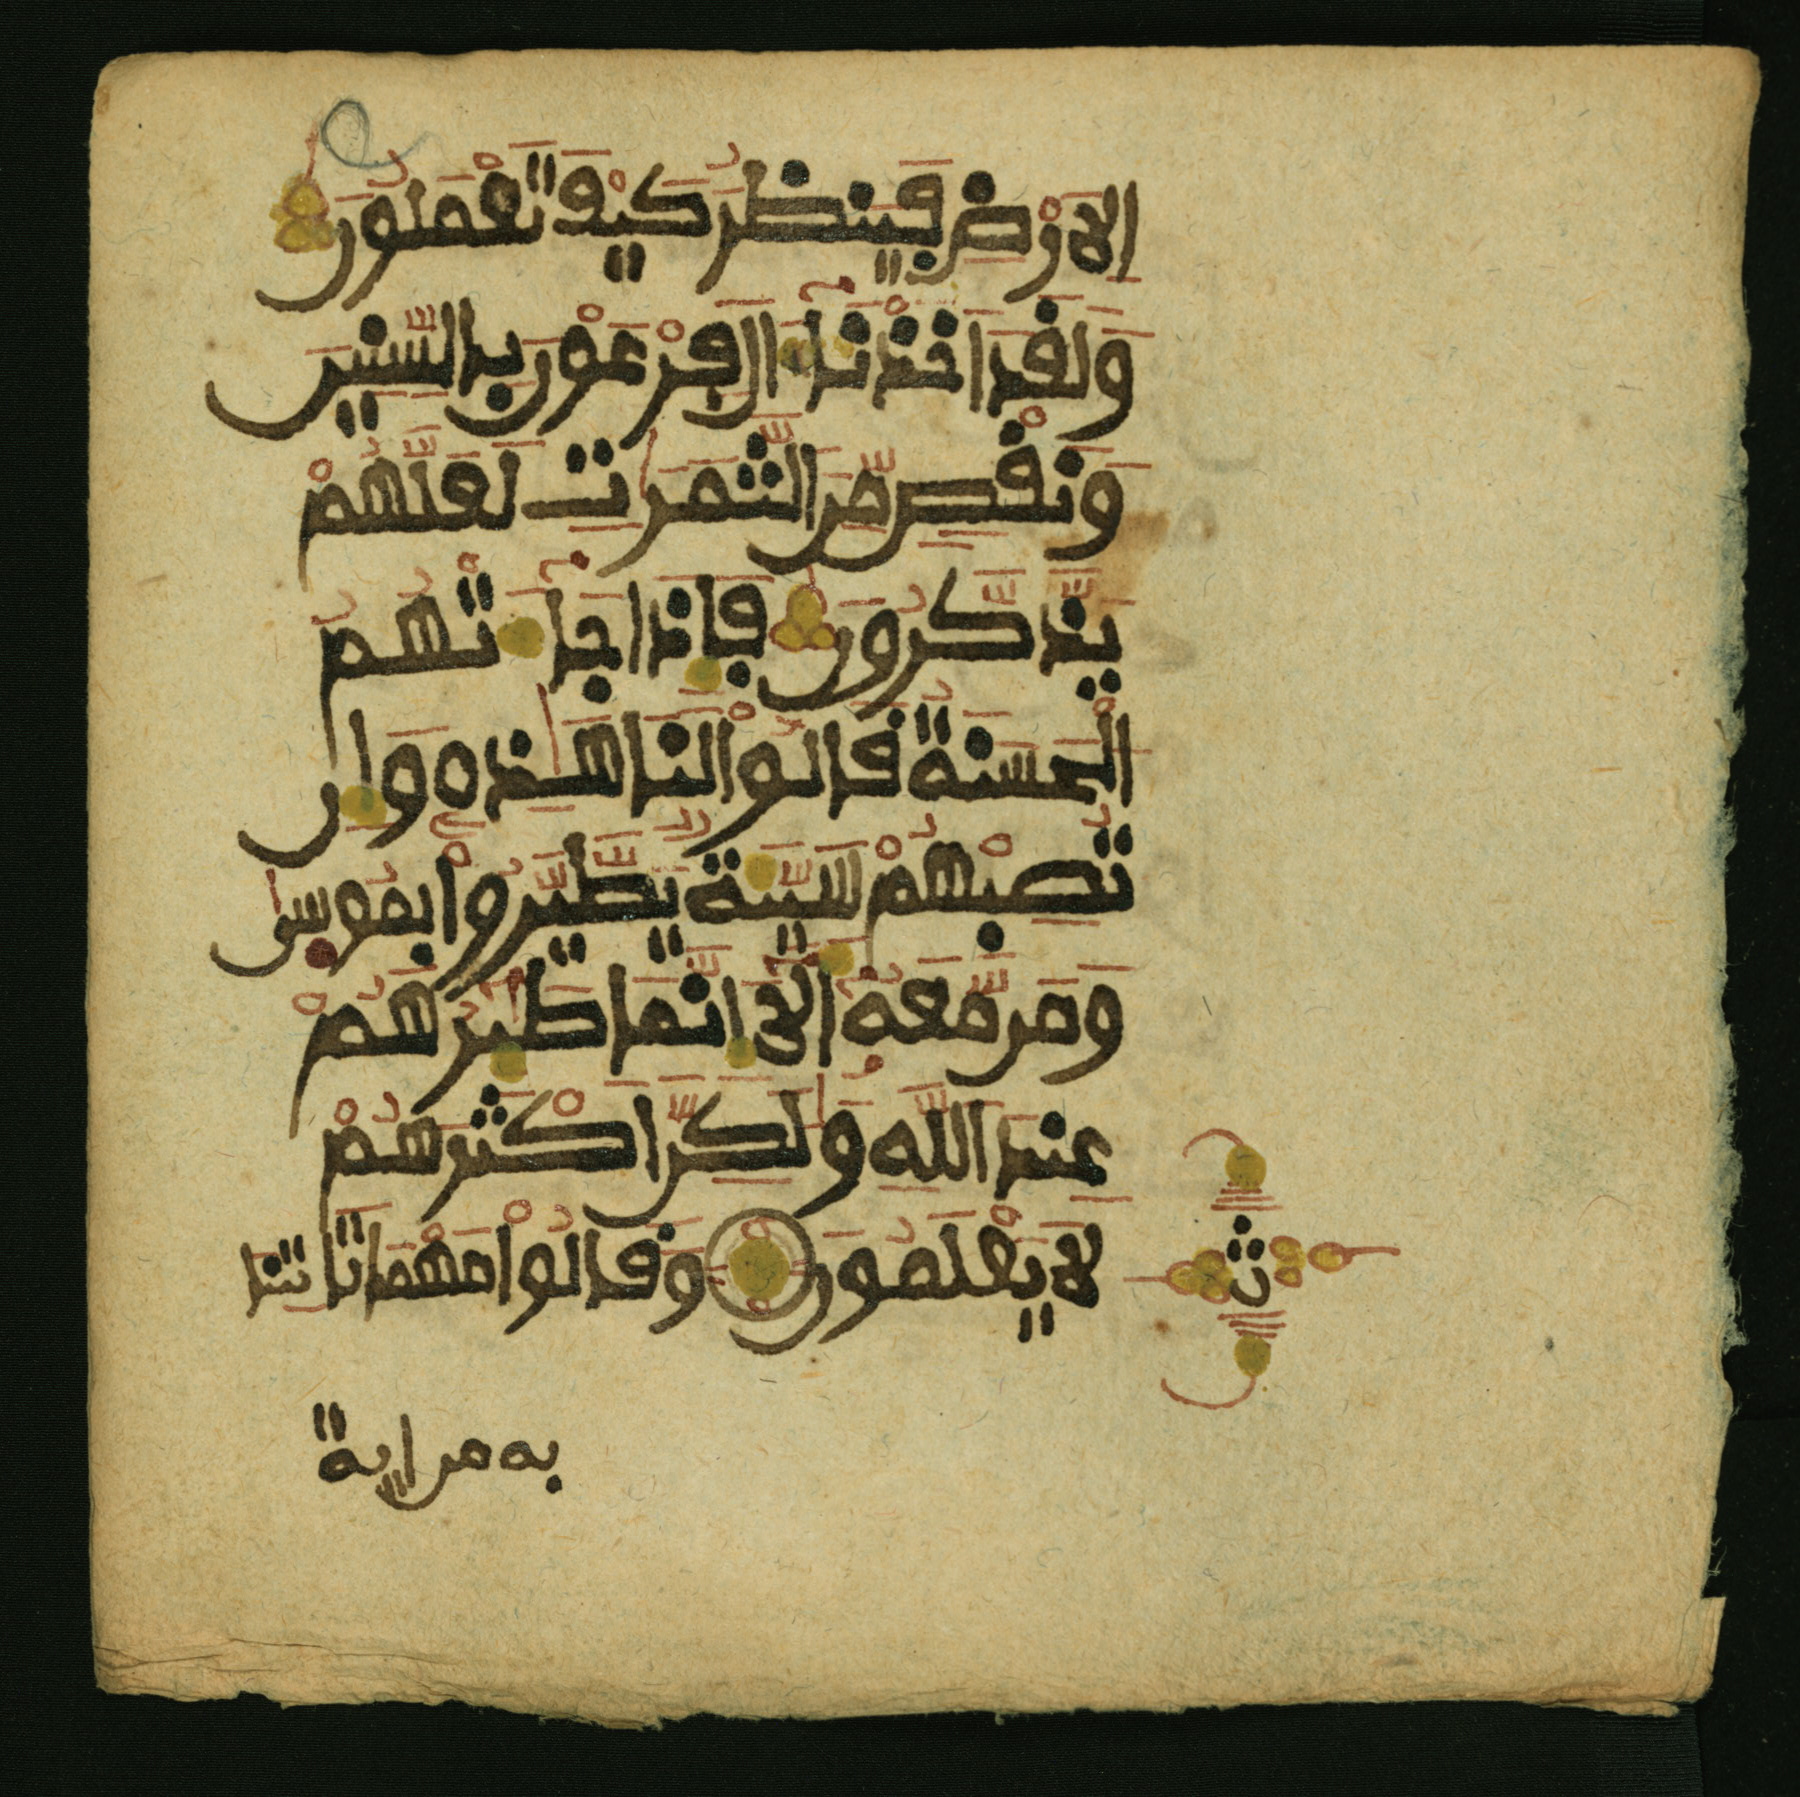 الارض فينظر كيف تعملون
ولقد اخذنا ال فرعون بالسنين
ونقص من الثمرت لعلهم
يذكرون فاذا جاتهم
الحسنة قالوا لنا هذه وان
تصبهم سيئة يطيروا بموسى
ومن معه الا انما طيرهم
عند الله ولكن اكثرهم
لا يعلمون وقالوا مهما تاتنا
ث
به من اية